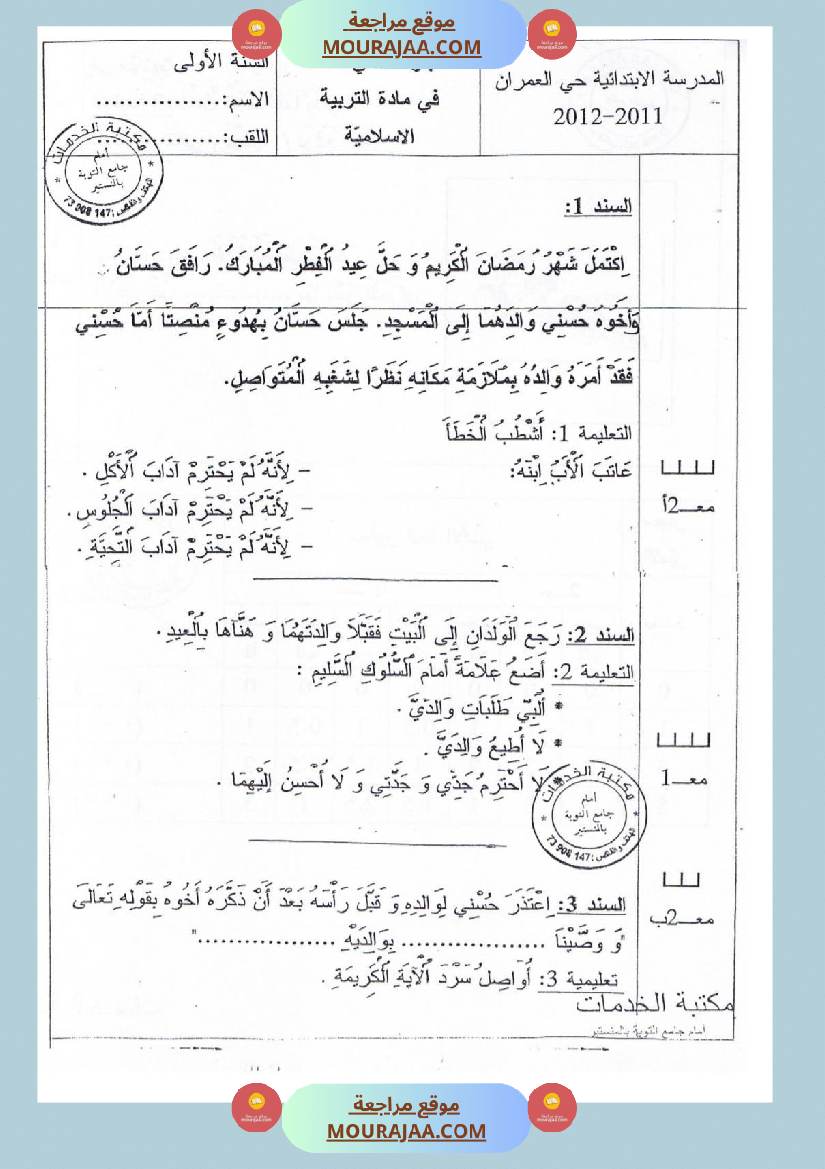 موقع مراجعة
MOURAJAA.COM
المدرسة الابتدائية حي العمران
2012-2011
في مادة التربية
الاسلاميّة
السنة الأولى
الاسم:................
اللقب:................
مكتبة الخدمات
أمام
جامع التوبة
بالمنستير
الهاتف والفاكس: 147 908 73
السند 1:
اِكْتَمَلَ شَهْرُ رَمَضَانَ الْكَرِيمُ وَ حَلَّ عِيدُ الْفِطْرِ الْمُبَارَكُ. رَافَقَ حَسَّانُ
وَأَخُوهُ حُسْنِي وَالِدَهُمَا إِلَى الْمَسْجِدِ. جَلَسَ حَسَّانُ بِهُدُوءٍ مُنْصِتًا أَمَّا حُسْنِي
فَقَدْ أَمَرَهُ وَالِدُهُ بِمُلَازَمَةِ مَكَانِهِ نَظَرًا لِشَغَبِهِ الْمُتَوَاصِلِ.
التعليمة 1: أَشْطُبُ الْخَطَأَ
عَاتَبَ الْأَبُ اِبْنَهُ: – لِأَنَّهُ لَمْ يَحْتَرِمْ آدَابَ الْأَكْلِ .
– لِأَنَّهُ لَمْ يَحْتَرِمْ آدَابَ الْجُلُوسِ.
– لِأَنَّهُ لَمْ يَحْتَرِمْ آدَابَ التَّحِيَّةِ .
معـ2أ
السند 2: رَجَعَ الْوَلَدَانِ إِلَى الْبَيْتِ فَقَبَّلَا وَالِدَتَهُمَا وَ هَنَّآهَا بِالْعِيدِ.
التعليمة 2: أَضَعُ عَلَامَةً أَمَامَ السُّلُوكِ السَّلِيمِ :
* أُلَبِّي طَلَبَاتِ وَالِدَيَّ .
* لَا أُطِيعُ وَالِدَيَّ .
* لَا أَحْتَرِمُ جَدِّي وَ جَدَّتِي وَ لَا أُحْسِنُ إِلَيْهِمَا .
معـ1
مكتبة الخدمات
أمام
جامع التوبة
بالمنستير
الهاتف والفاكس: 147 908 73
السند 3: اِعْتَذَرَ حُسْنِي لِوَالِدِهِ وَ قَبَّلَ رَأْسَهُ بَعْدَ أَنْ ذَكَّرَهُ أَخُوهُ بِقَوْلِهِ تَعَالَى
"وَ وَصَّيْنَا ................... بِوَالِدَيْهِ ..................."
تعليمية 3: أُوَاصِلُ سَرْدَ الْآيَةِ الْكَرِيمَةِ .
معـ2ب
مكتبة الخدمات
أمام جامع التوبة بالمنستير
موقع مراجعة
MOURAJAA.COM